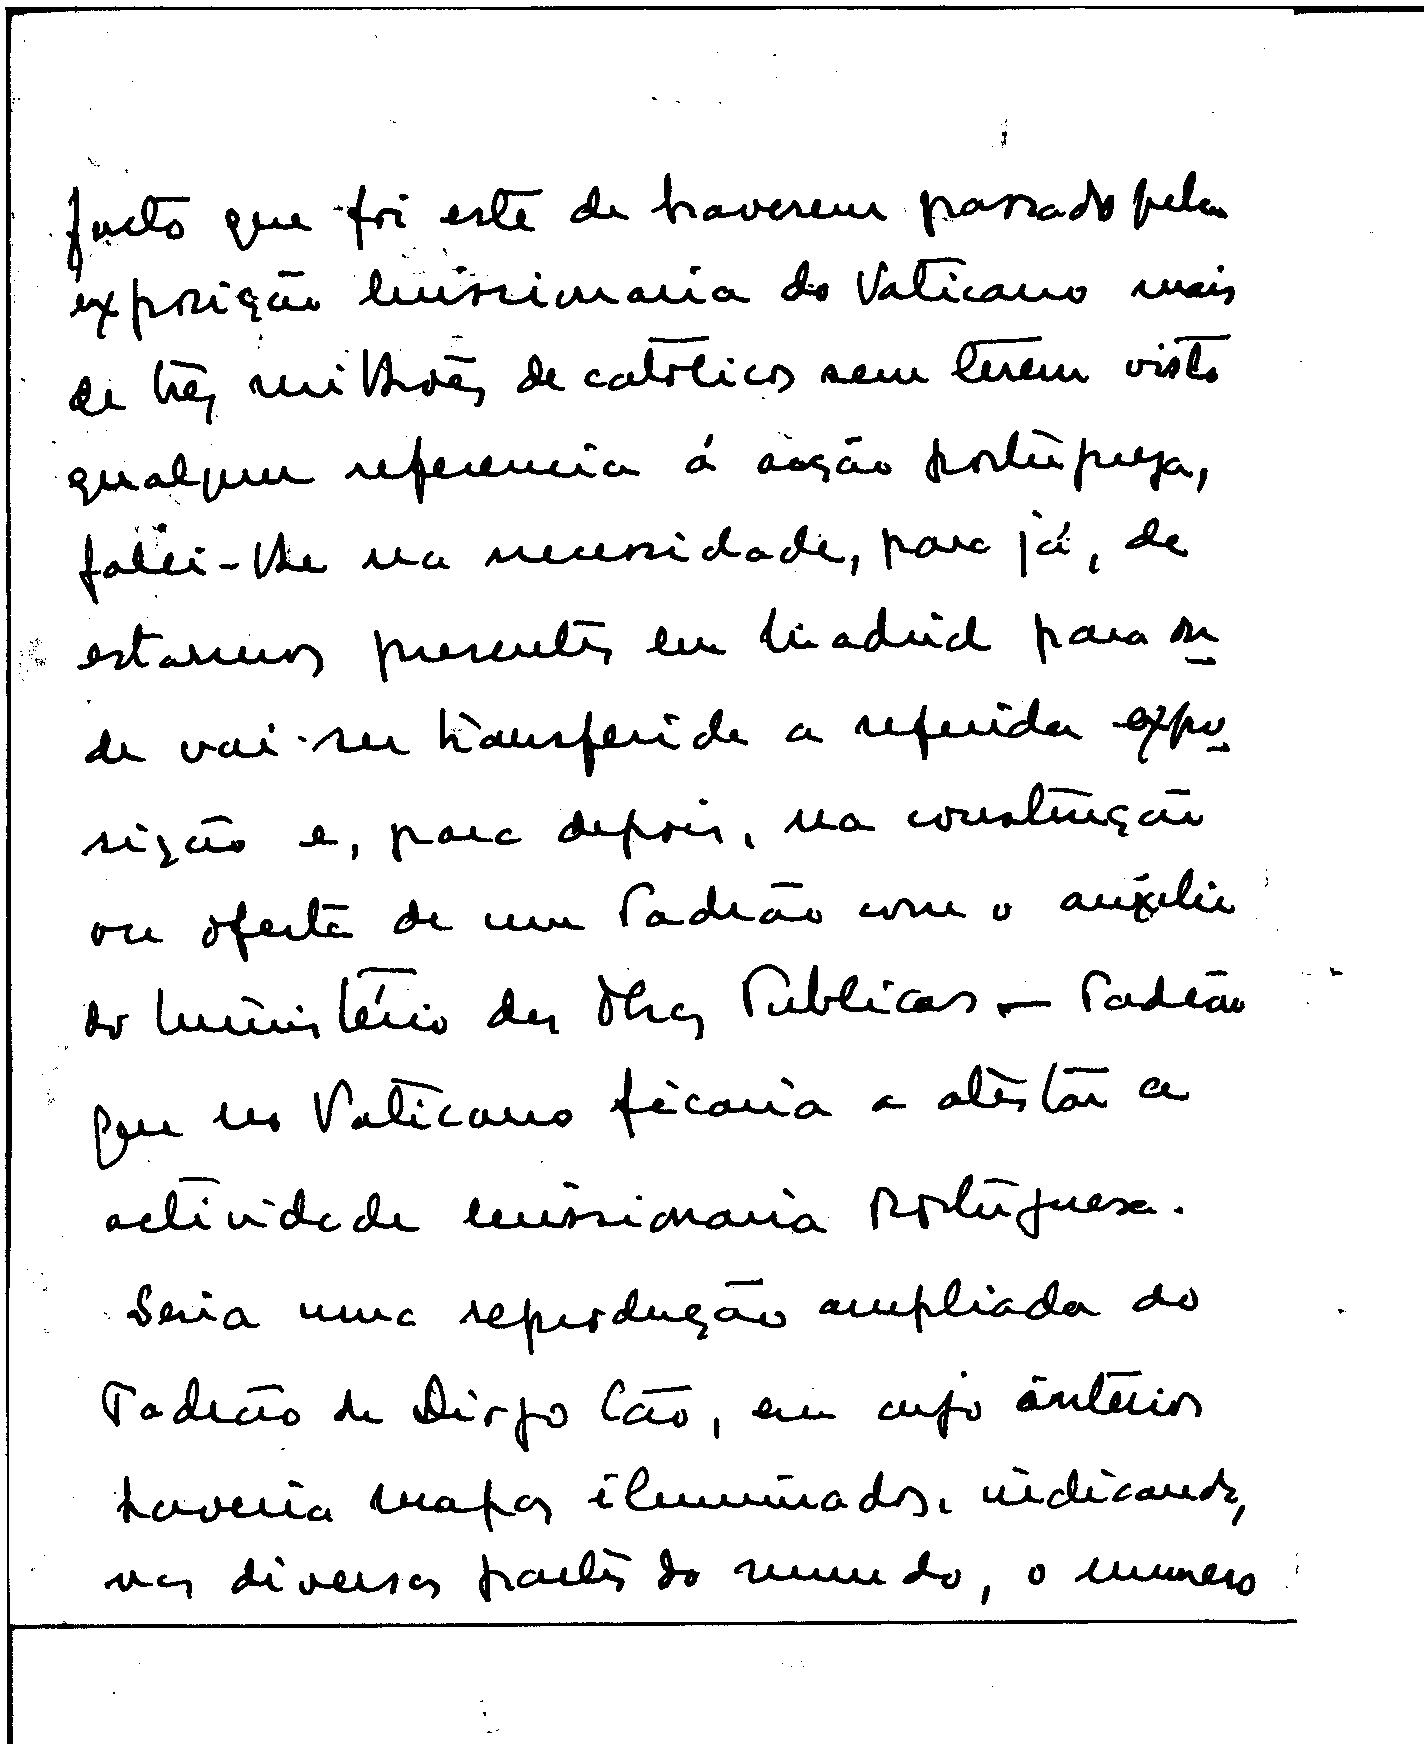 facto que foi este de haverem passado pela
exposição missionaria do Vaticano mais
de três milhões de católicos sem terem visto
qualquer referencia á acção portuguesa,
falei-lhe na necessidade, para já, de
estarmos presentes em Madrid para on
de vai ser transferida a referida expo
sição e, para depois, na construção
ou oferta de um Padrão com o auxílio
do Ministério das Obras Publicas — Padrão
que no Vaticano ficaria a atestar a
actividade missionaria Portuguesa.
Seria uma reprodução ampliada do
Padrão de Diogo Cão, em cujo interior
haveria mapas iluminados, indicando,
nas diversas partes do mundo, o numero